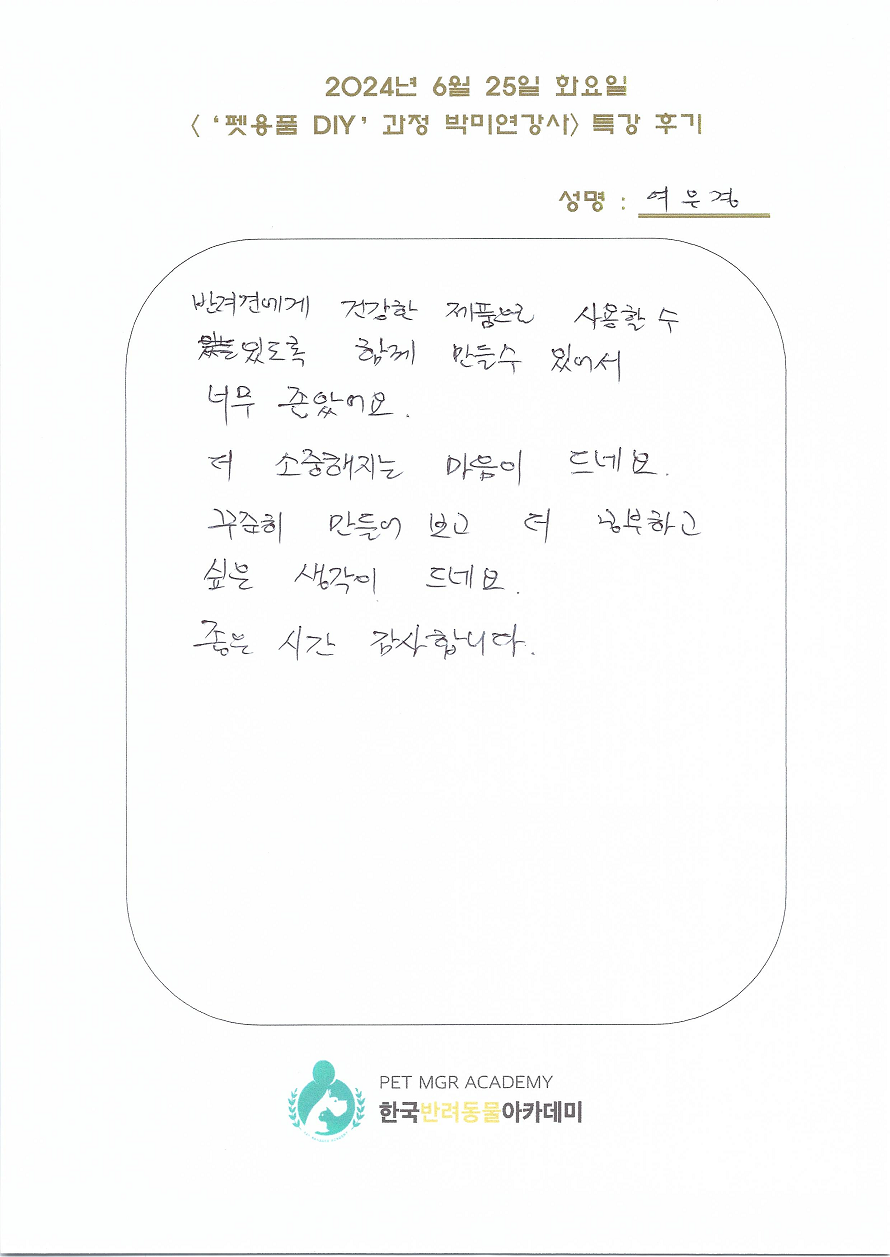 2024년 6월 25일 화요일
< '펫용품 DIY' 과정 박미연강사> 특강 후기
성명 : 여우경
반려견에게 건강한 제품으로 사용할 수
있도록 함께 만들수 있어서
너무 좋았어요.
더 소중해지는 마음이 드네요.
꾸준히 만들어 보고 더 공부하고
싶은 생각이 드네요.
좋은 시간 감사합니다.
PET MGR ACADEMY
한국반려동물아카데미